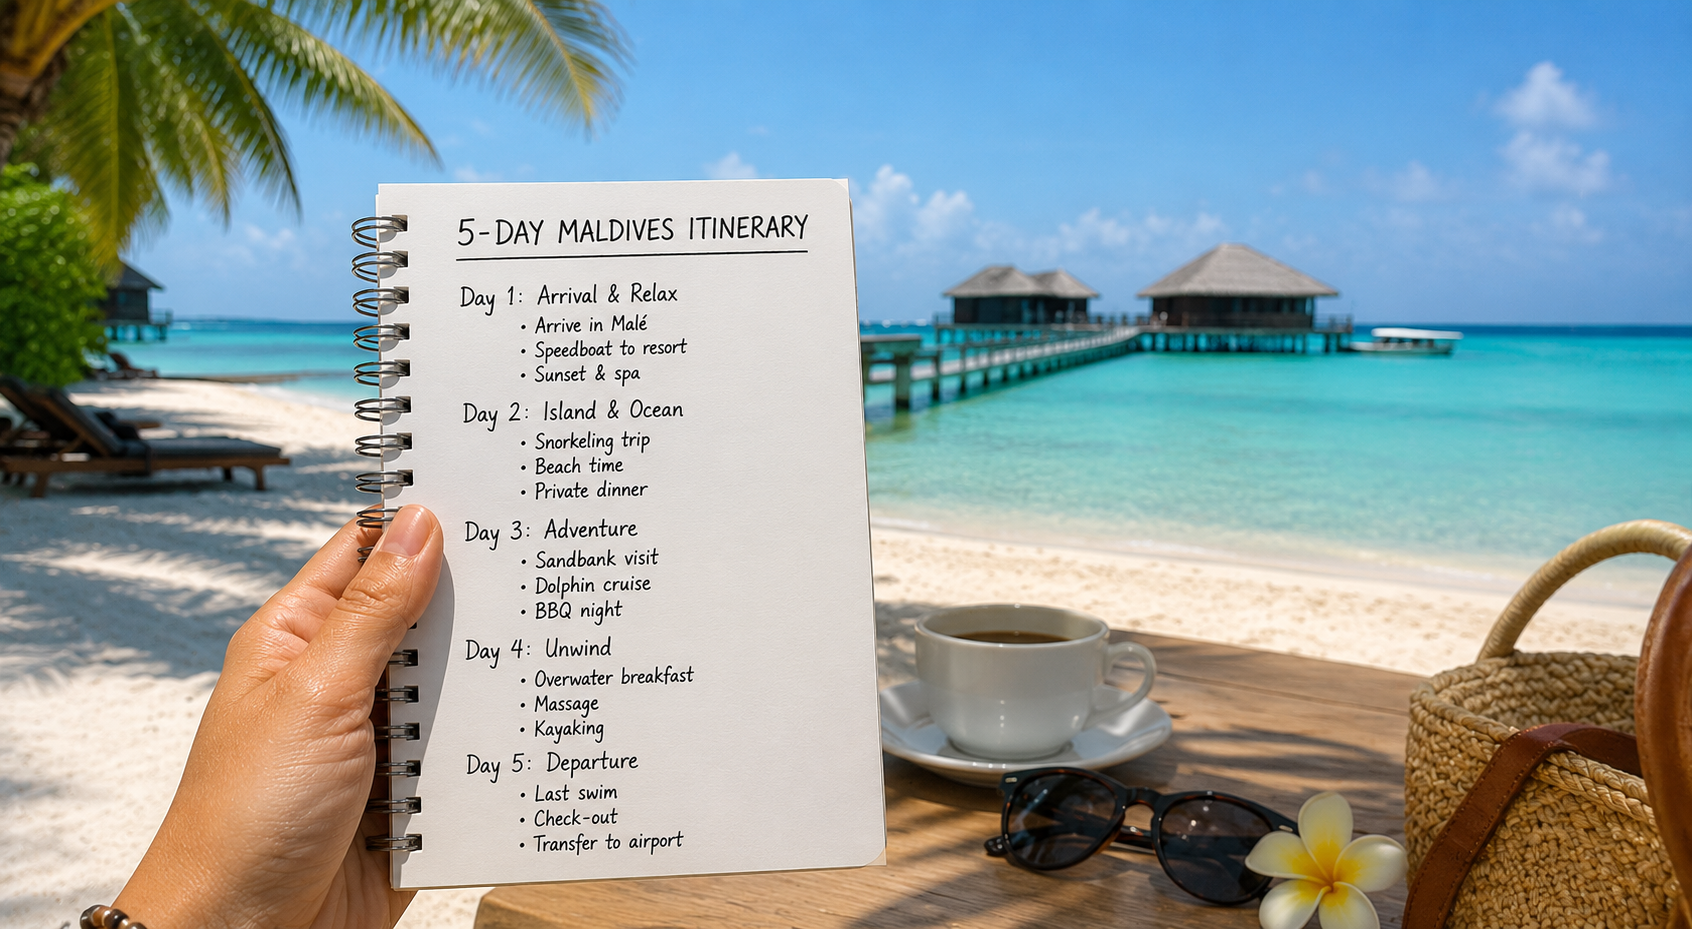 5-DAY MALDIVES ITINERARY
Day 1: Arrival & Relax
• Arrive in Malé
• Speedboat to resort
• Sunset & spa
Day 2: Island & Ocean
• Snorkeling trip
• Beach time
• Private dinner
Day 3: Adventure
• Sandbank visit
• Dolphin cruise
• BBQ night
Day 4: Unwind
• Overwater breakfast
• Massage
• Kayaking
Day 5: Departure
• Last swim
• Check-out
• Transfer to airport